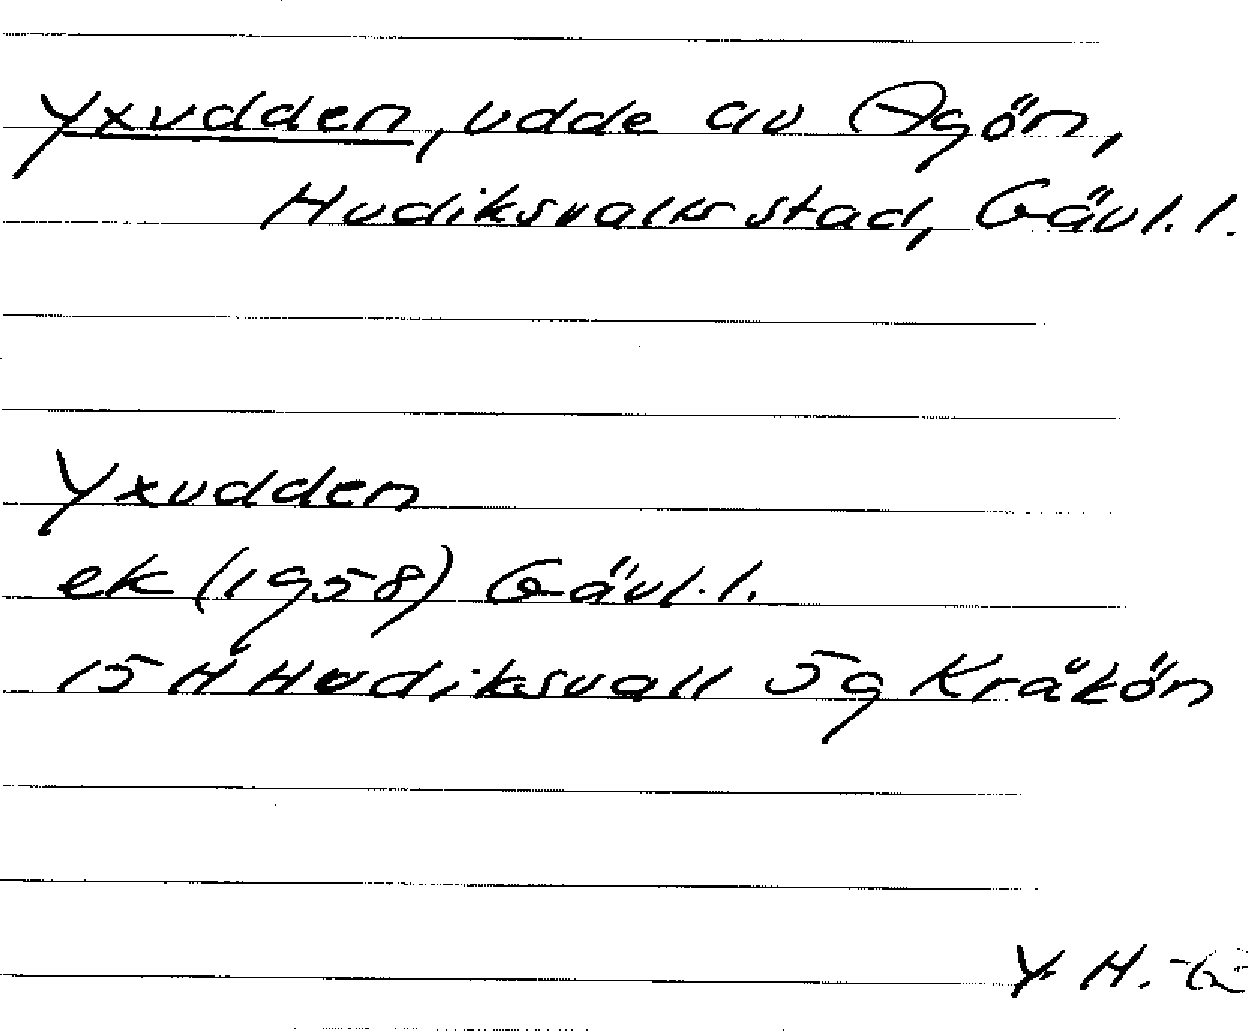 Yxudden, udde av Agön,
Hudiksvalls stad, Gävl. l.
Yxudden
ek (1958) Gävl. l.
15 H Hudiksvall 5g Kråkön
Y H.